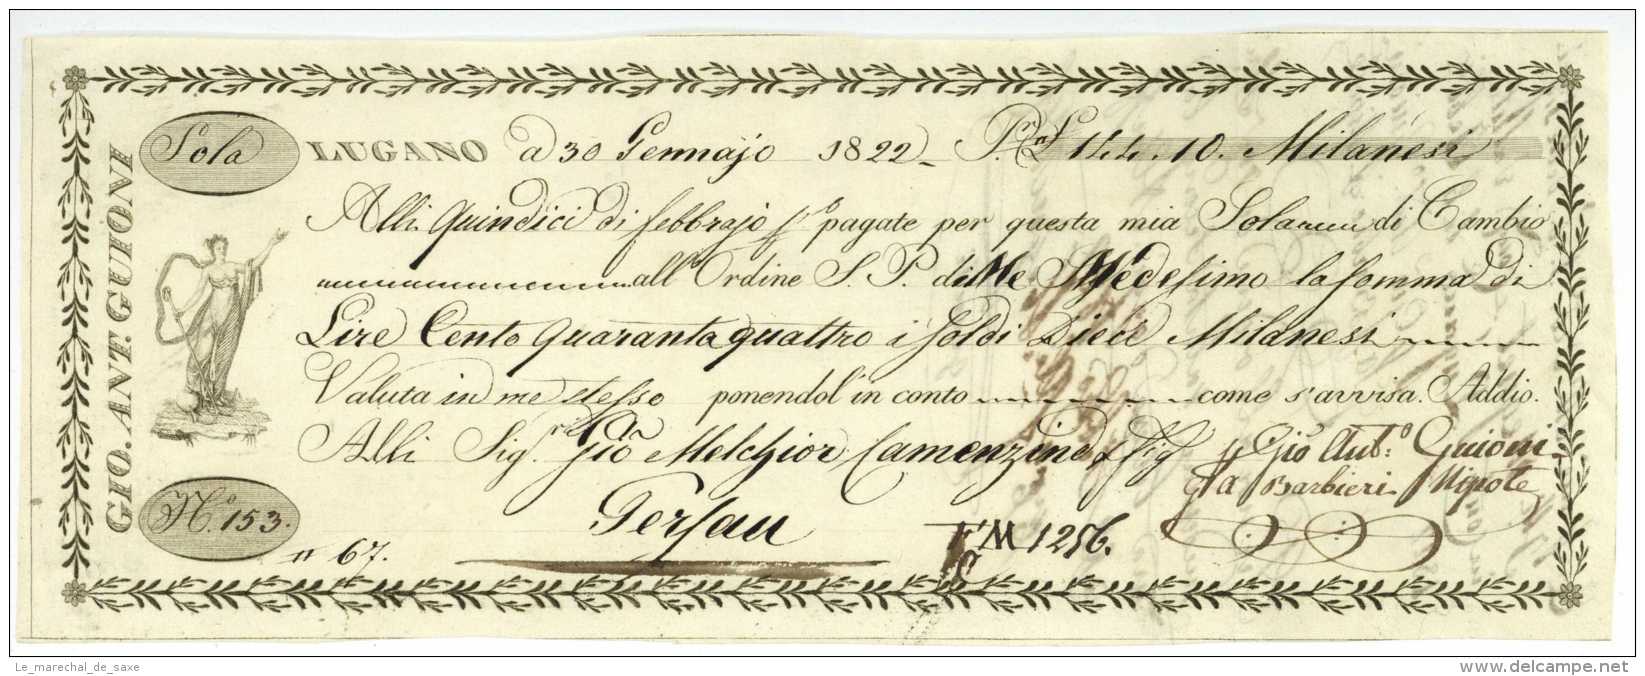 GIO. ANT. GUIONI
Sola LUGANO a 30 Gennajo 1822 P. L 144.10. Milanesi
Alli quindici di febbrajo po pagate per questa mia Sola di Cambio
all'Ordine S. P. di Me Medesimo la somma di
Lire Cento quaranta quattro i soldi Dieci Milanesi
Valuta in me stesso ponendol' in conto come s'avvisa. Addio.
Alli Sigri Gio Melchior Camenzind & fig Gio Antº: Guioni
Barbieri Nipote
Gersau
Nº. 153.
nº 67. FM 1256.
Le_marechal_de_saxe
www.delcampe.net